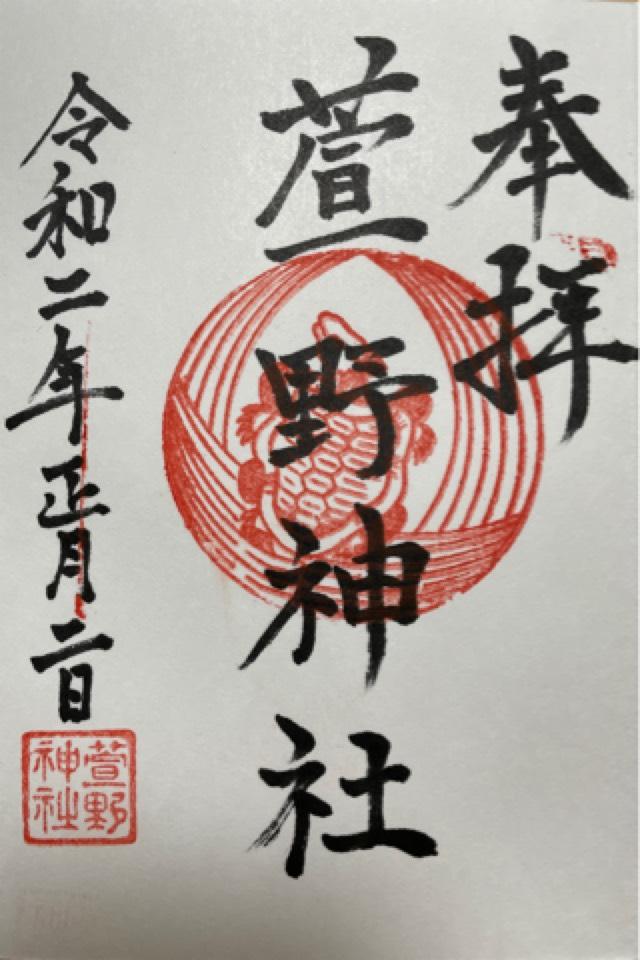 奉拝
萱野神社
令和二年正月二日
萱野神社